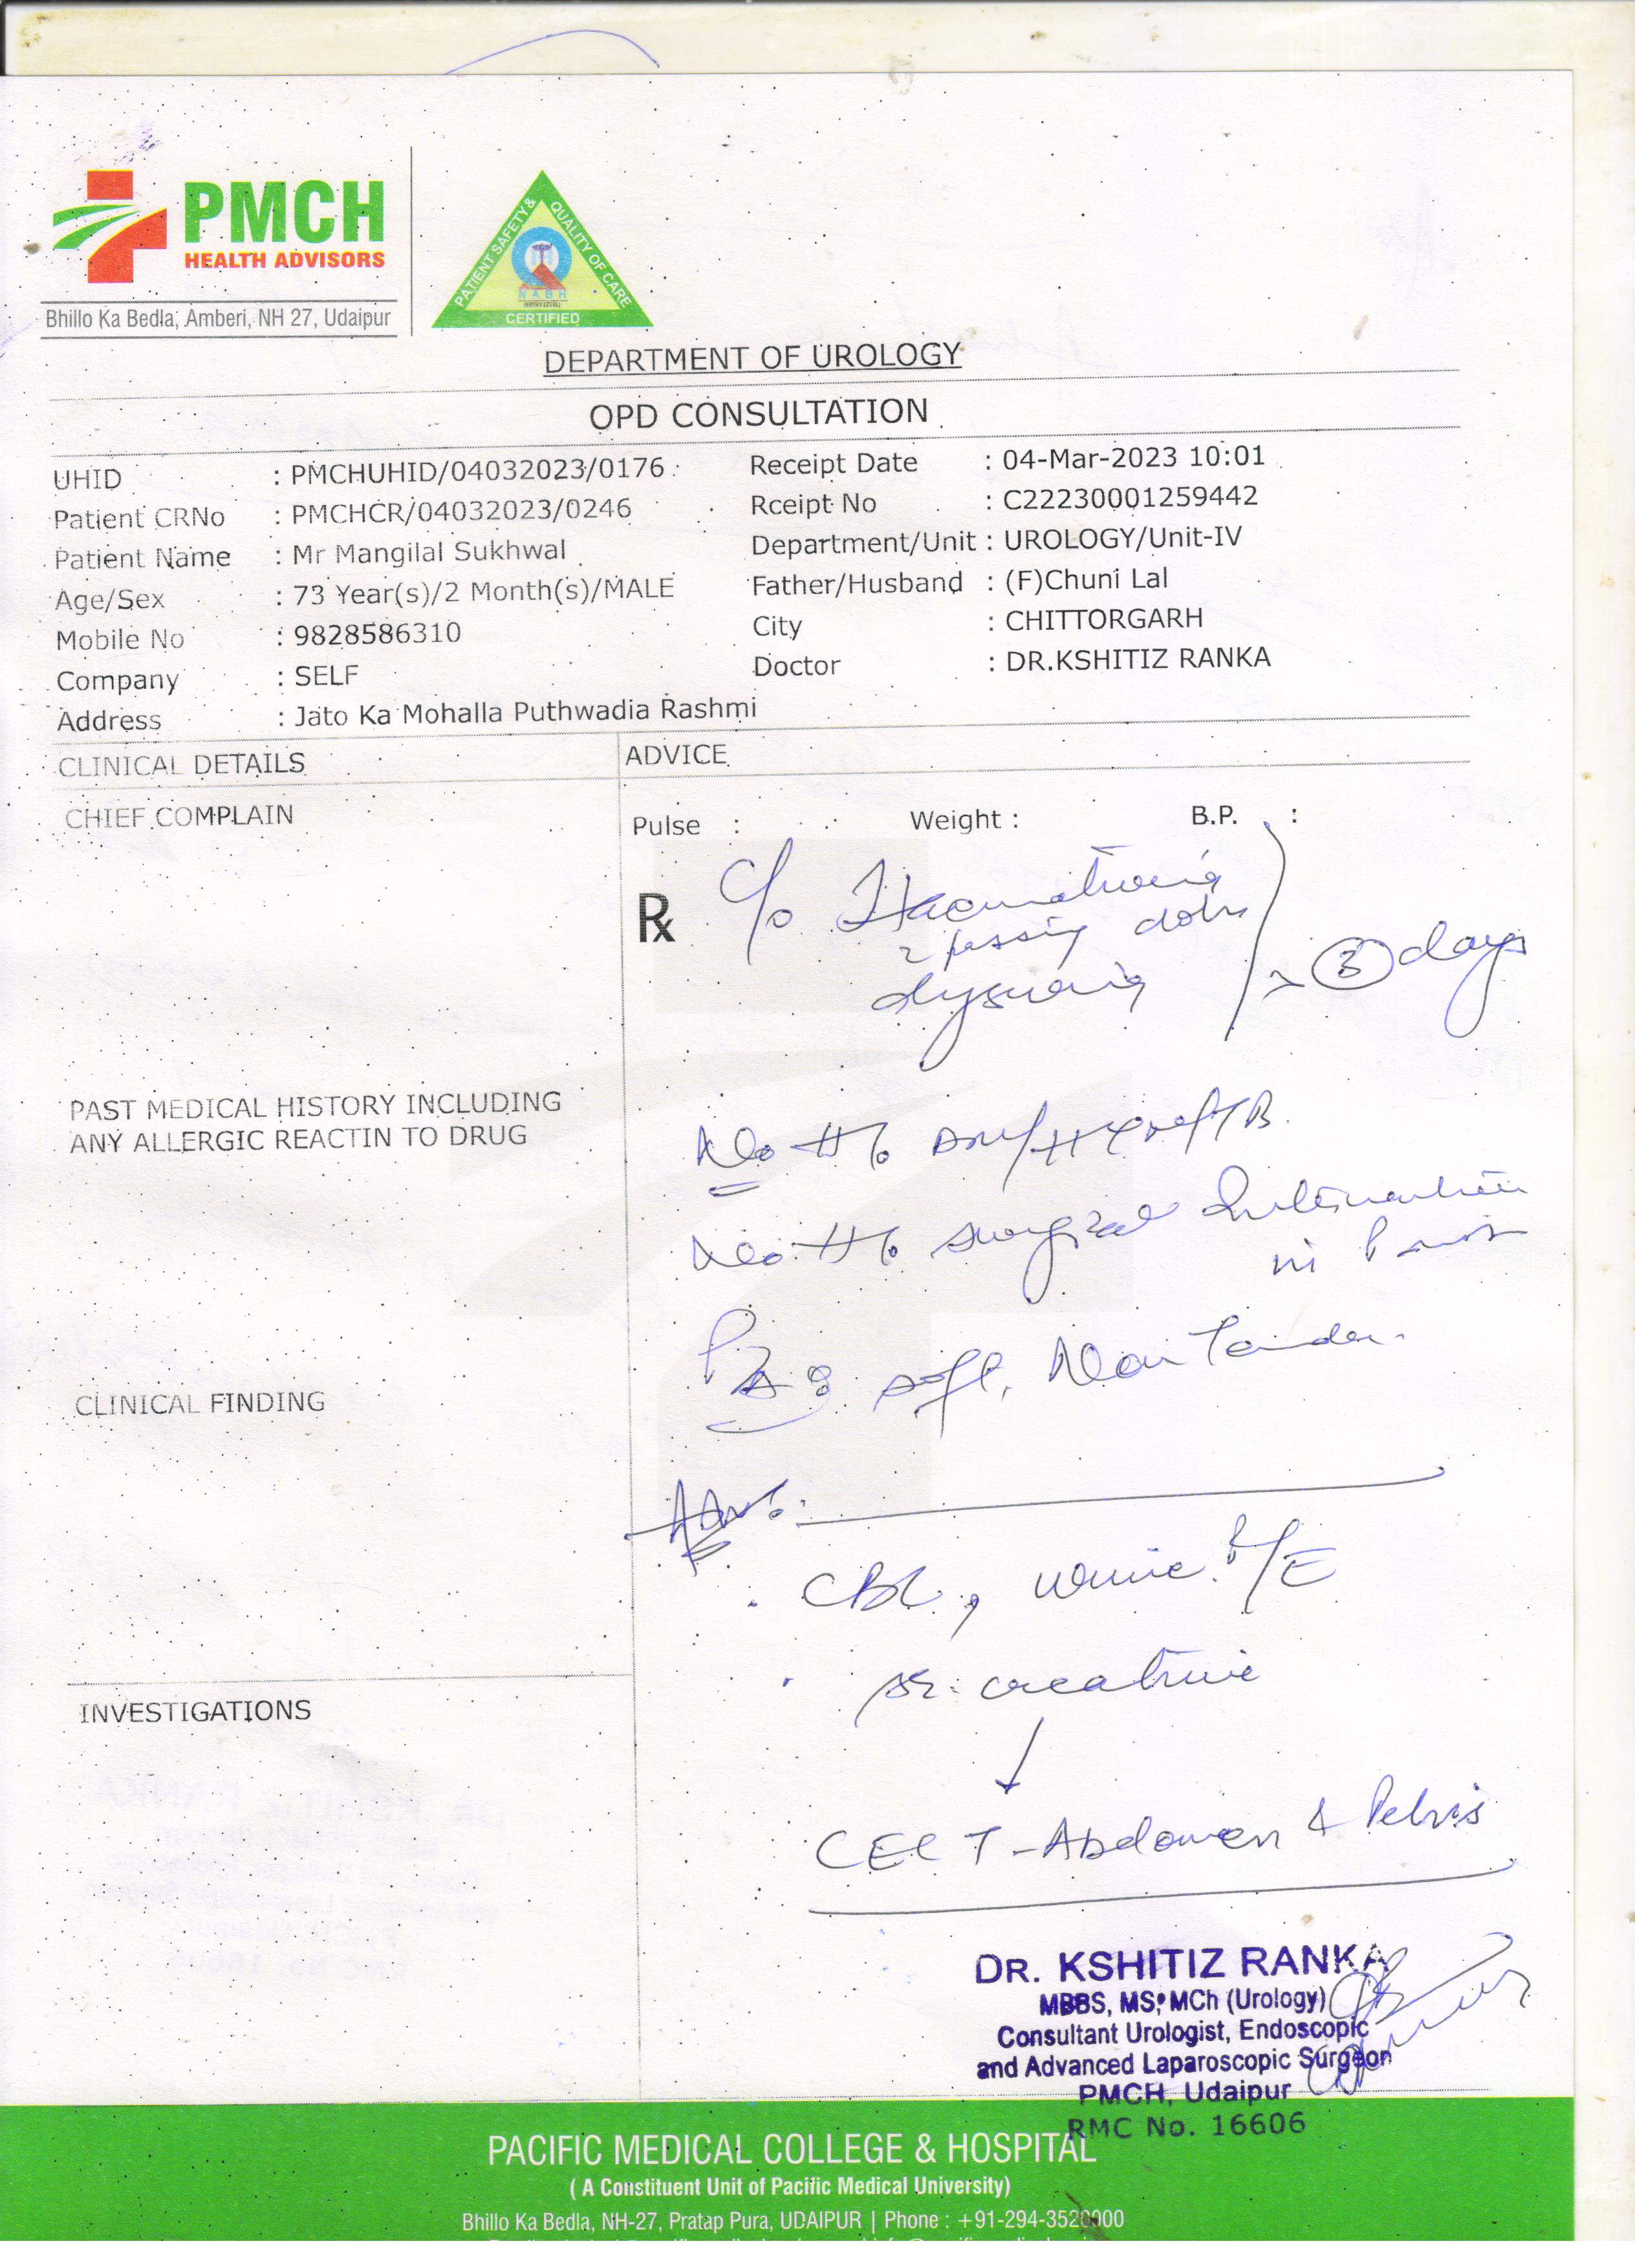 PMCH
HEALTH ADVISORS
Bhillo Ka Bedla, Amberi, NH 27, Udaipur
PATIENT SAFETY & QUALITY OF CARE
NABH
CERTIFIED
DEPARTMENT OF UROLOGY
OPD CONSULTATION
UHID : PMCHUHID/04032023/0176 Receipt Date : 04-Mar-2023 10:01
Patient CRNo : PMCHCR/04032023/0246 Rceipt No : C22230001259442
Patient Name : Mr Mangilal Sukhwal Department/Unit : UROLOGY/Unit-IV
Age/Sex : 73 Year(s)/2 Month(s)/MALE Father/Husband : (F)Chuni Lal
Mobile No : 9828586310 City : CHITTORGARH
Company : SELF Doctor : DR.KSHITIZ RANKA
Address : Jato Ka Mohalla Puthwadia Rashmi
CLINICAL DETAILS ADVICE
CHIEF COMPLAIN
Pulse : Weight : B.P. :
Rx c/o Haematuria
passing clots
dysuria
3 days
PAST MEDICAL HISTORY INCLUDING
ANY ALLERGIC REACTIN TO DRUG
No H/o DM/HTN/TB.
No H/o surgical Intervention
in Past
P/A : soft, Non Tender.
CLINICAL FINDING
Adv:
CBC, urine R/E
Sr. creatinie
INVESTIGATIONS
CECT - Abdomen & Pelvis
DR. KSHITIZ RANKA
MBBS, MS, MCh (Urology)
Consultant Urologist, Endoscopic
and Advanced Laparoscopic Surgeon
PMCH, Udaipur
RMC No. 16606
PACIFIC MEDICAL COLLEGE & HOSPITAL
( A Constituent Unit of Pacific Medical University)
Bhillo Ka Bedla, NH-27, Pratap Pura, UDAIPUR | Phone : +91-294-3520000